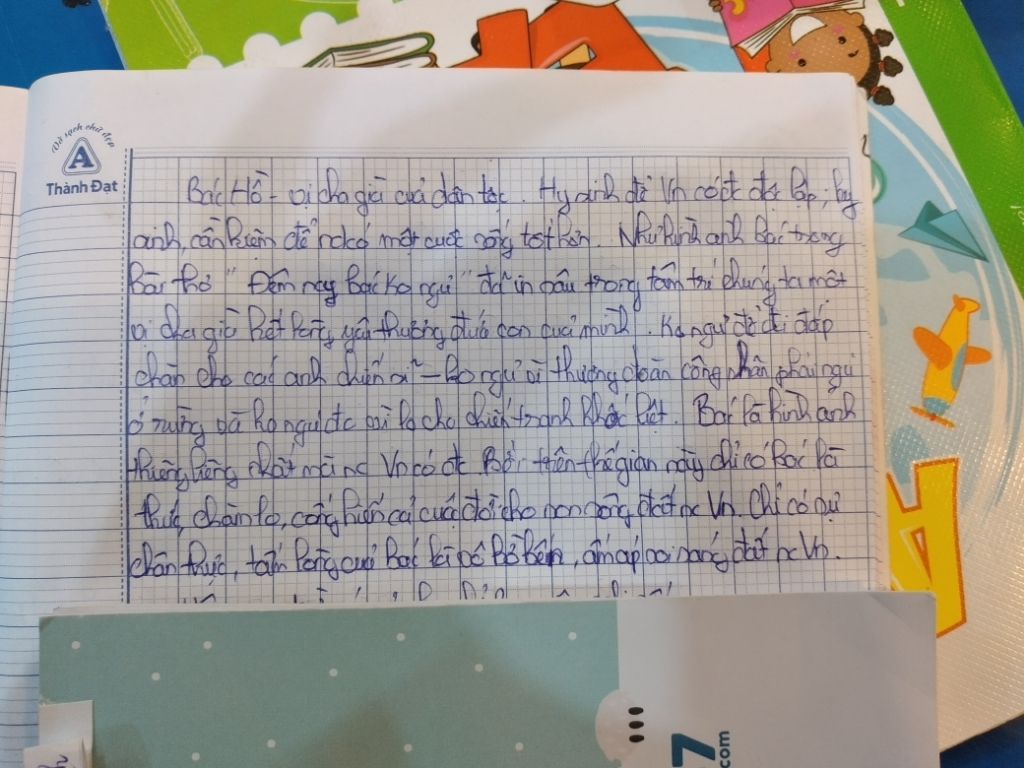 Vở sạch chữ đẹp
A
Thành Đạt
Bác Hồ - vị cha già của dân tộc. Hy sinh để Vn có đc độc lập, hy
sinh, cần kiệm để nd có một cuộc sống tốt hơn. Như hình ảnh Bác trong
Bài thơ "Đêm nay Bác ko ngủ" đã in sâu trong tâm trí chúng ta một
vị cha già hết lòng yêu thương đứa con của mình. Ko ngủ để đi đắp
chăn cho các anh chiến sĩ - ko ngủ vì thương đoàn công nhân phải ngủ
ở rừng và ko ngủ đc vì lo cho chiến tranh khốc liệt. Bác là hình ảnh
thiêng liêng nhất mà nc Vn có đc Bởi trên thế gian này chỉ có Bác là
thức, chăm lo, cống hiến cả cuộc đời cho non sông đất nc Vn. Chỉ có sự
chân thực, tấm lòng của Bác là vô bờ bến, ấm áp soi sáng đất nc Vn.
7
com